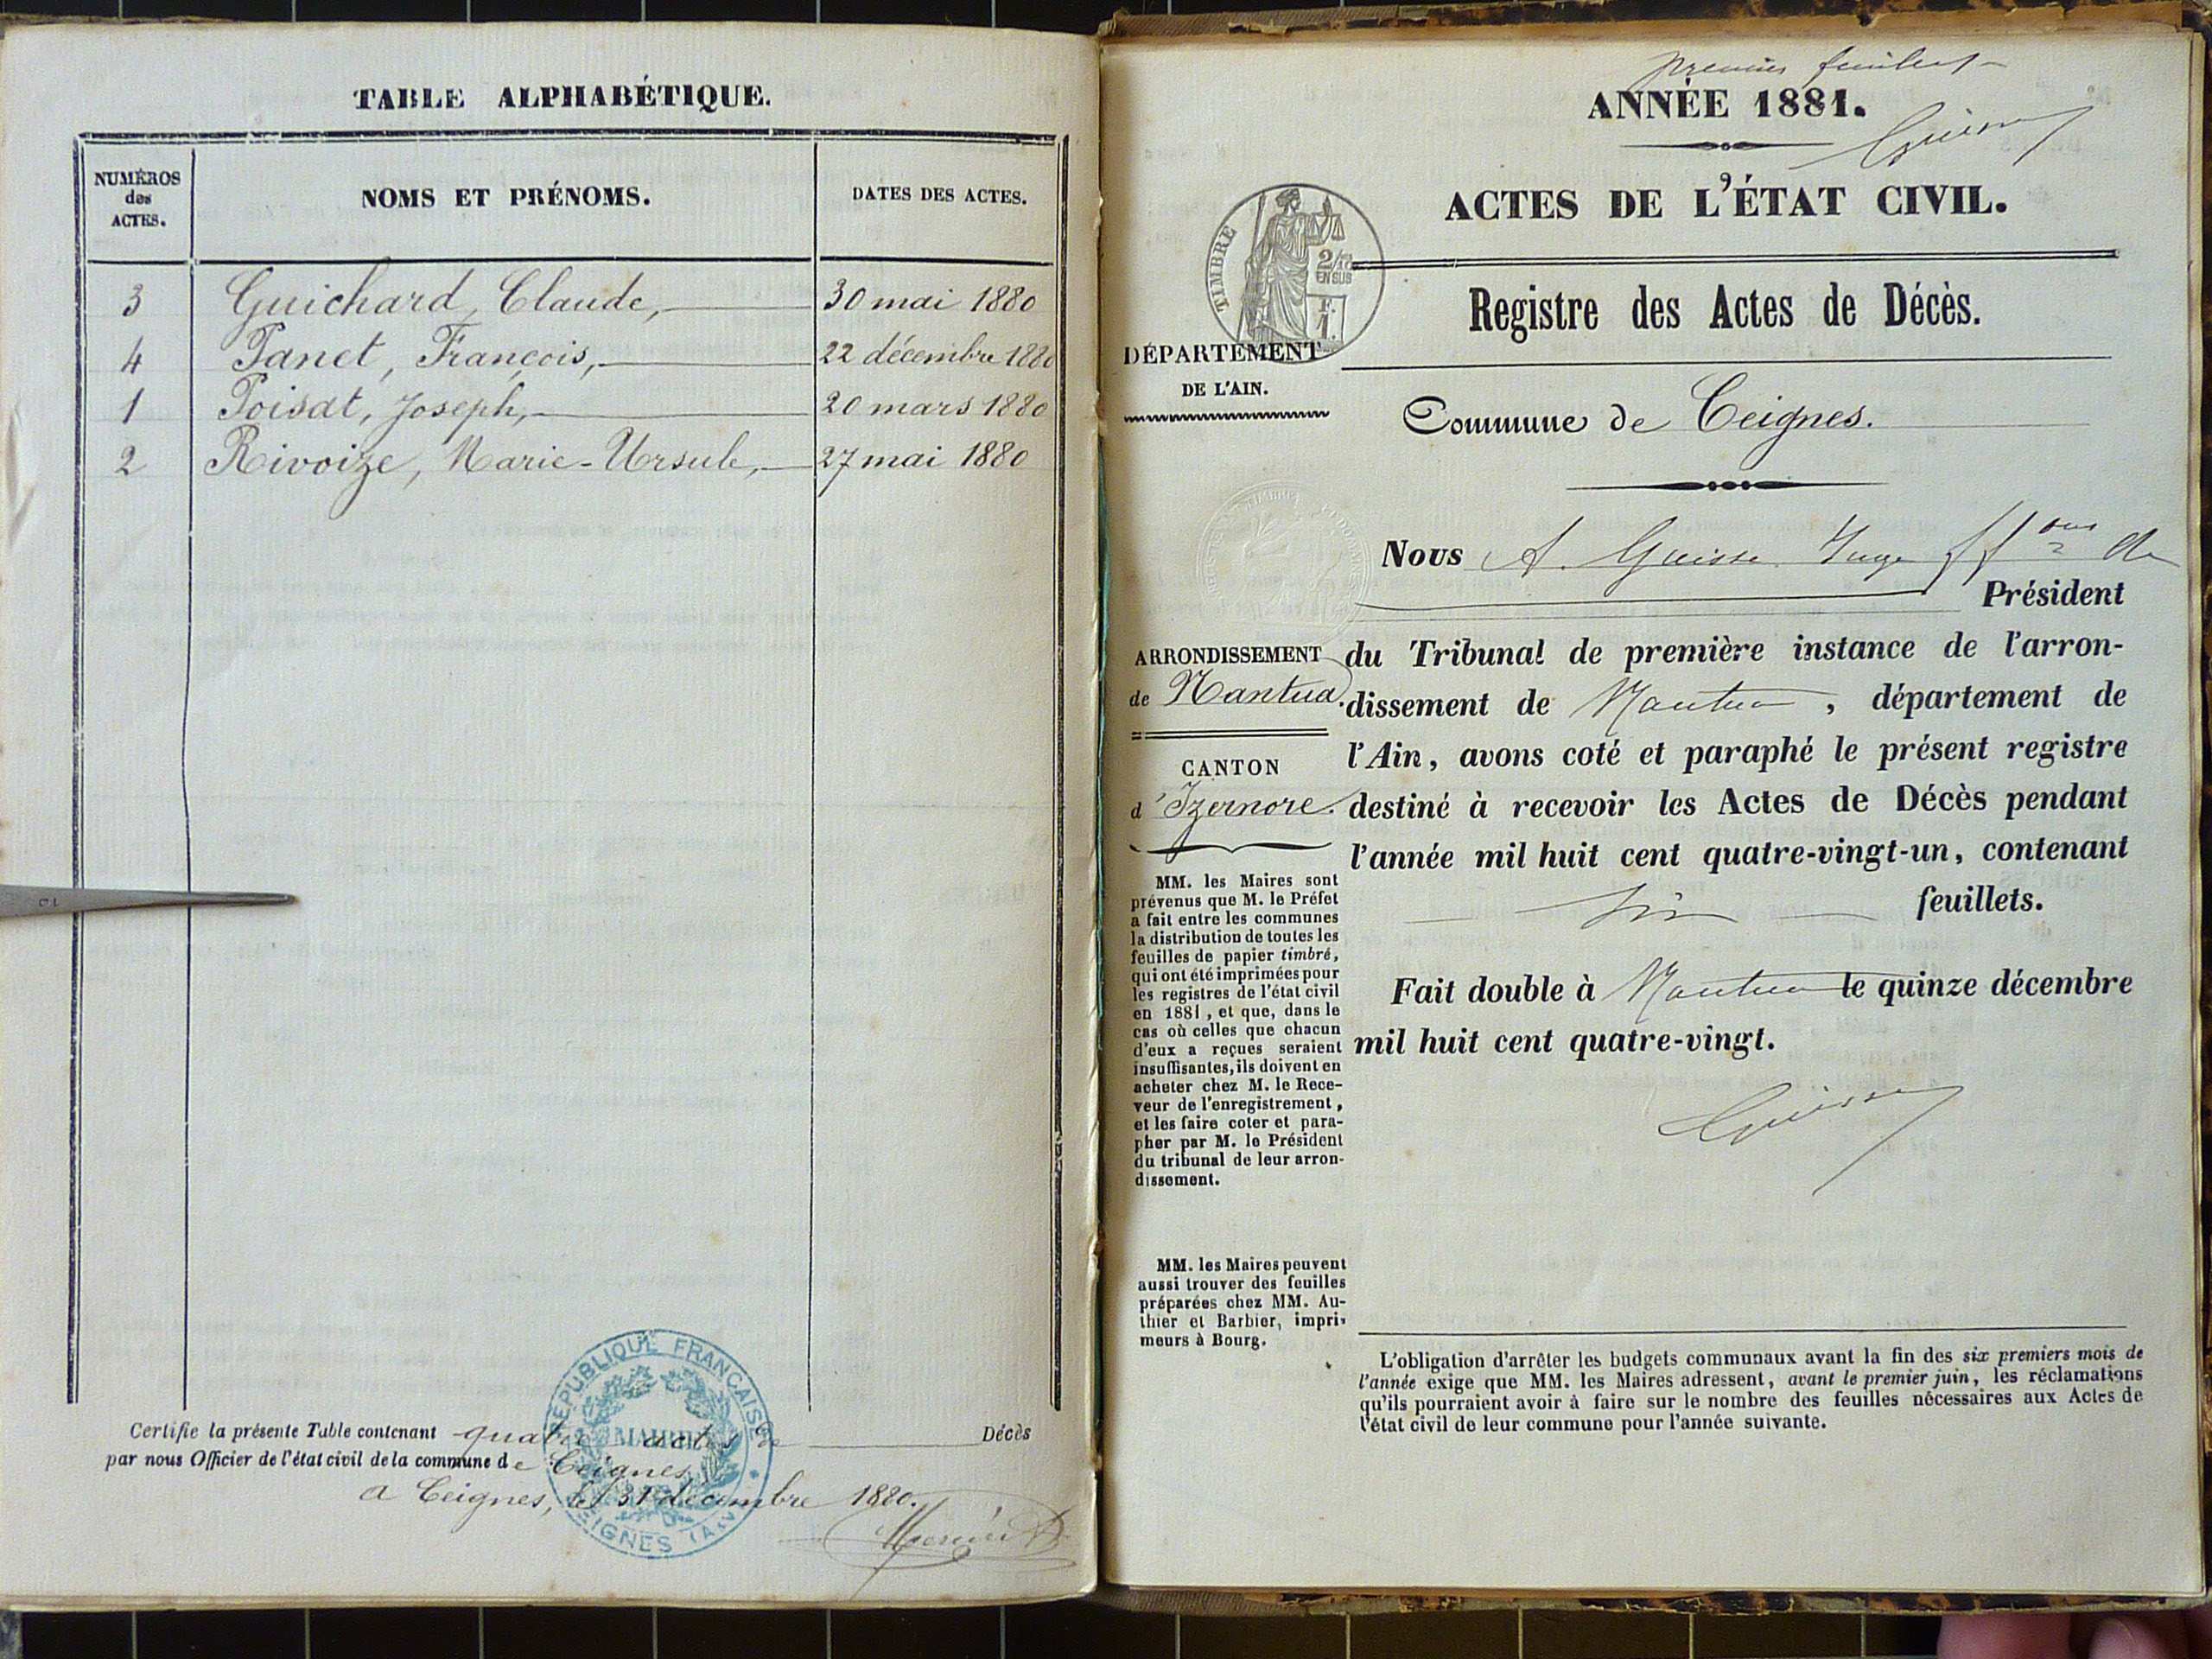 TABLE ALPHABÉTIQUE.
NUMÉROS des ACTES.
NOMS ET PRÉNOMS.
DATES DES ACTES.
3 Guichard, Claude, 30 mai 1880
4 Panet, François, 22 décembre 1880
1 Poisat, Joseph, 20 mars 1880
2 Rivoize, Marie-Ursule, 27 mai 1880
Certifie la présente Table contenant quatre actes de Décès
par nous Officier de l'état civil de la commune de Ceignes
a Ceignes, le 31 décembre 1880.
RÉPUBLIQUE FRANÇAISE
MAIRIE
CEIGNES (AIN)
premier feuillet
ANNÉE 1881.
ACTES DE L'ÉTAT CIVIL.
TIMBRE
2/10
EN SUS
Registre des Actes de Décès.
DÉPARTEMENT
DE L'AIN.
Commune de Ceignes.
Nous A. Guisse Juge ff ons de
Président
ARRONDISSEMENT
de Nantua.
CANTON
d'Izernore.
du Tribunal de première instance de l'arron-
dissement de Nantua, département de
l'Ain, avons coté et paraphé le présent registre
destiné à recevoir les Actes de Décès pendant
l'année mil huit cent quatre-vingt-un, contenant
six feuillets.
Fait double à Nantua le quinze décembre
mil huit cent quatre-vingt.
MM. les Maires sont
prévenus que M. le Préfet
a fait entre les communes
la distribution de toutes les
feuilles de papier timbré,
qui ont été imprimées pour
les registres de l'état civil
en 1881, et que, dans le
cas où celles que chacun
d'eux a reçues seraient
insuffisantes, ils doivent en
acheter chez M. le Rece-
veur de l'enregistrement,
et les faire coter et para-
pher par M. le Président
du tribunal de leur arron-
dissement.
MM. les Maires peuvent
aussi trouver des feuilles
préparées chez MM. Au-
thier et Barbier, impri-
meurs à Bourg.
L'obligation d'arrêter les budgets communaux avant la fin des six premiers mois de
l'année exige que MM. les Maires adressent, avant le premier juin, les réclamations
qu'ils pourraient avoir à faire sur le nombre des feuilles nécessaires aux Actes de
l'état civil de leur commune pour l'année suivante.